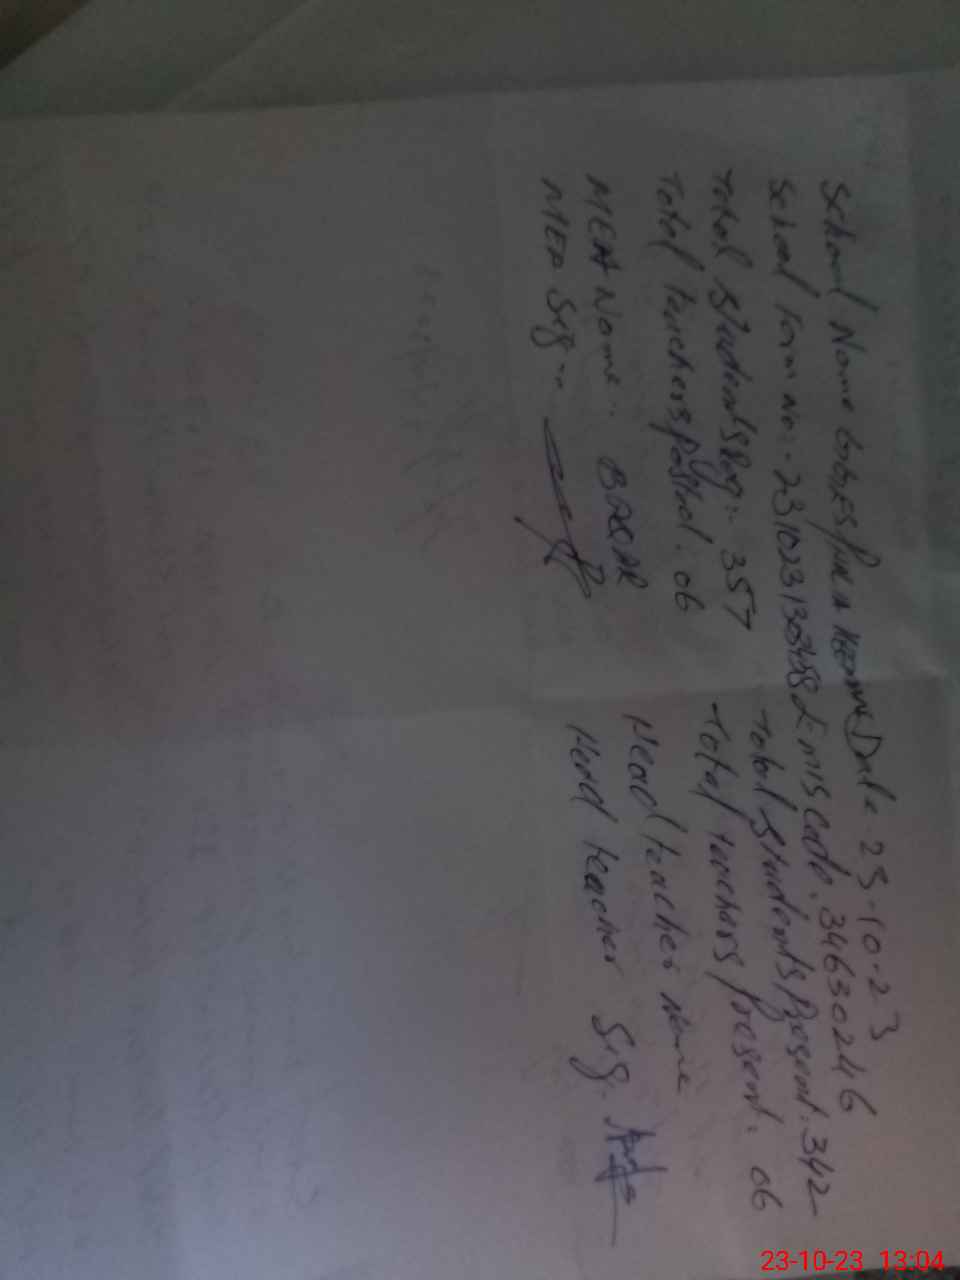 School Name GGPS Date 23-10-23
School Form No:- 23102313034582 Emis Code. 34630246
Total Students Reg:- 357 Total Students Present: 342
Total teachers Posted. 06 Total teachers present. 06
MEA Name.. BASAR Head teacher name
MEA Sig.. Head teacher Sig.
23-10-23 13:04